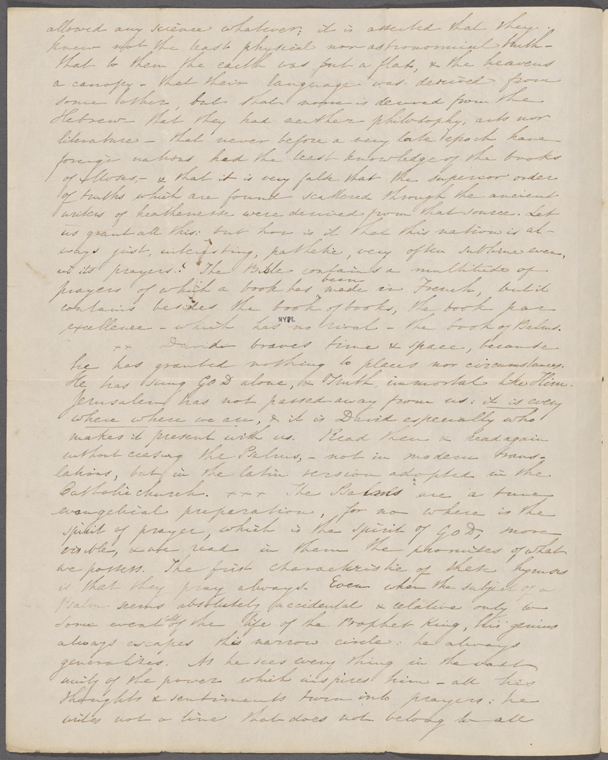 allowed any science whatever; it is asserted that they
knew not the least physical nor astronomical truth -
that to them the earth was but a flat, & the heavens
a canopy - that their language was derived from
some other, but that none is derived from the
Hebrew that they had neither philosophy, arts nor
literature - that never before a very late epoch have
foreign nations had the least knowledge of the books
of Moses, - & that it is very false that the superior order
of truths which are found scattered through the ancient
writers of heathenette were derived from that source. Let
us grant all this: but how is it that this nation is al-
ways just, interesting, pathetic, very often sublime even,
in its prayers? The Bible contains a multitude of
prayers of which a book has been made in French, but it
contains besides the book of books, the book par
excellence - which has no rival - the book of Psalms.
NYPL
×× David braves time & space, because
he has granted nothing to places nor circumstances.
He has sung GOD alone, & Truth immortal like Him.
Jerusalem has not passed away from us: it is every
where where we are, & it is David especially who
makes it present with us. Read then & read again
without ceasing the Psalms, - not in modern trans-
lations, but in the latin version adopted in the
Catholic church. ××× The Psalms are a true
evangelical preparation, for no where is the
spirit of prayer, which is the spirit of GOD, more
visible, & we read in them the promises of what
we possess. The first characteristic of these hymns
is that they pray always. Even when the subject of a
Psalm seems absolutely accidental & relative only to
some event of the life of the Prophet King, his genius
always escapes this narrow circle: he always
generalizes. As he sees every thing in the
unity of the power which inspires him - all his
thoughts & sentiments turn into prayers: he
writes not a line that does not belong to all